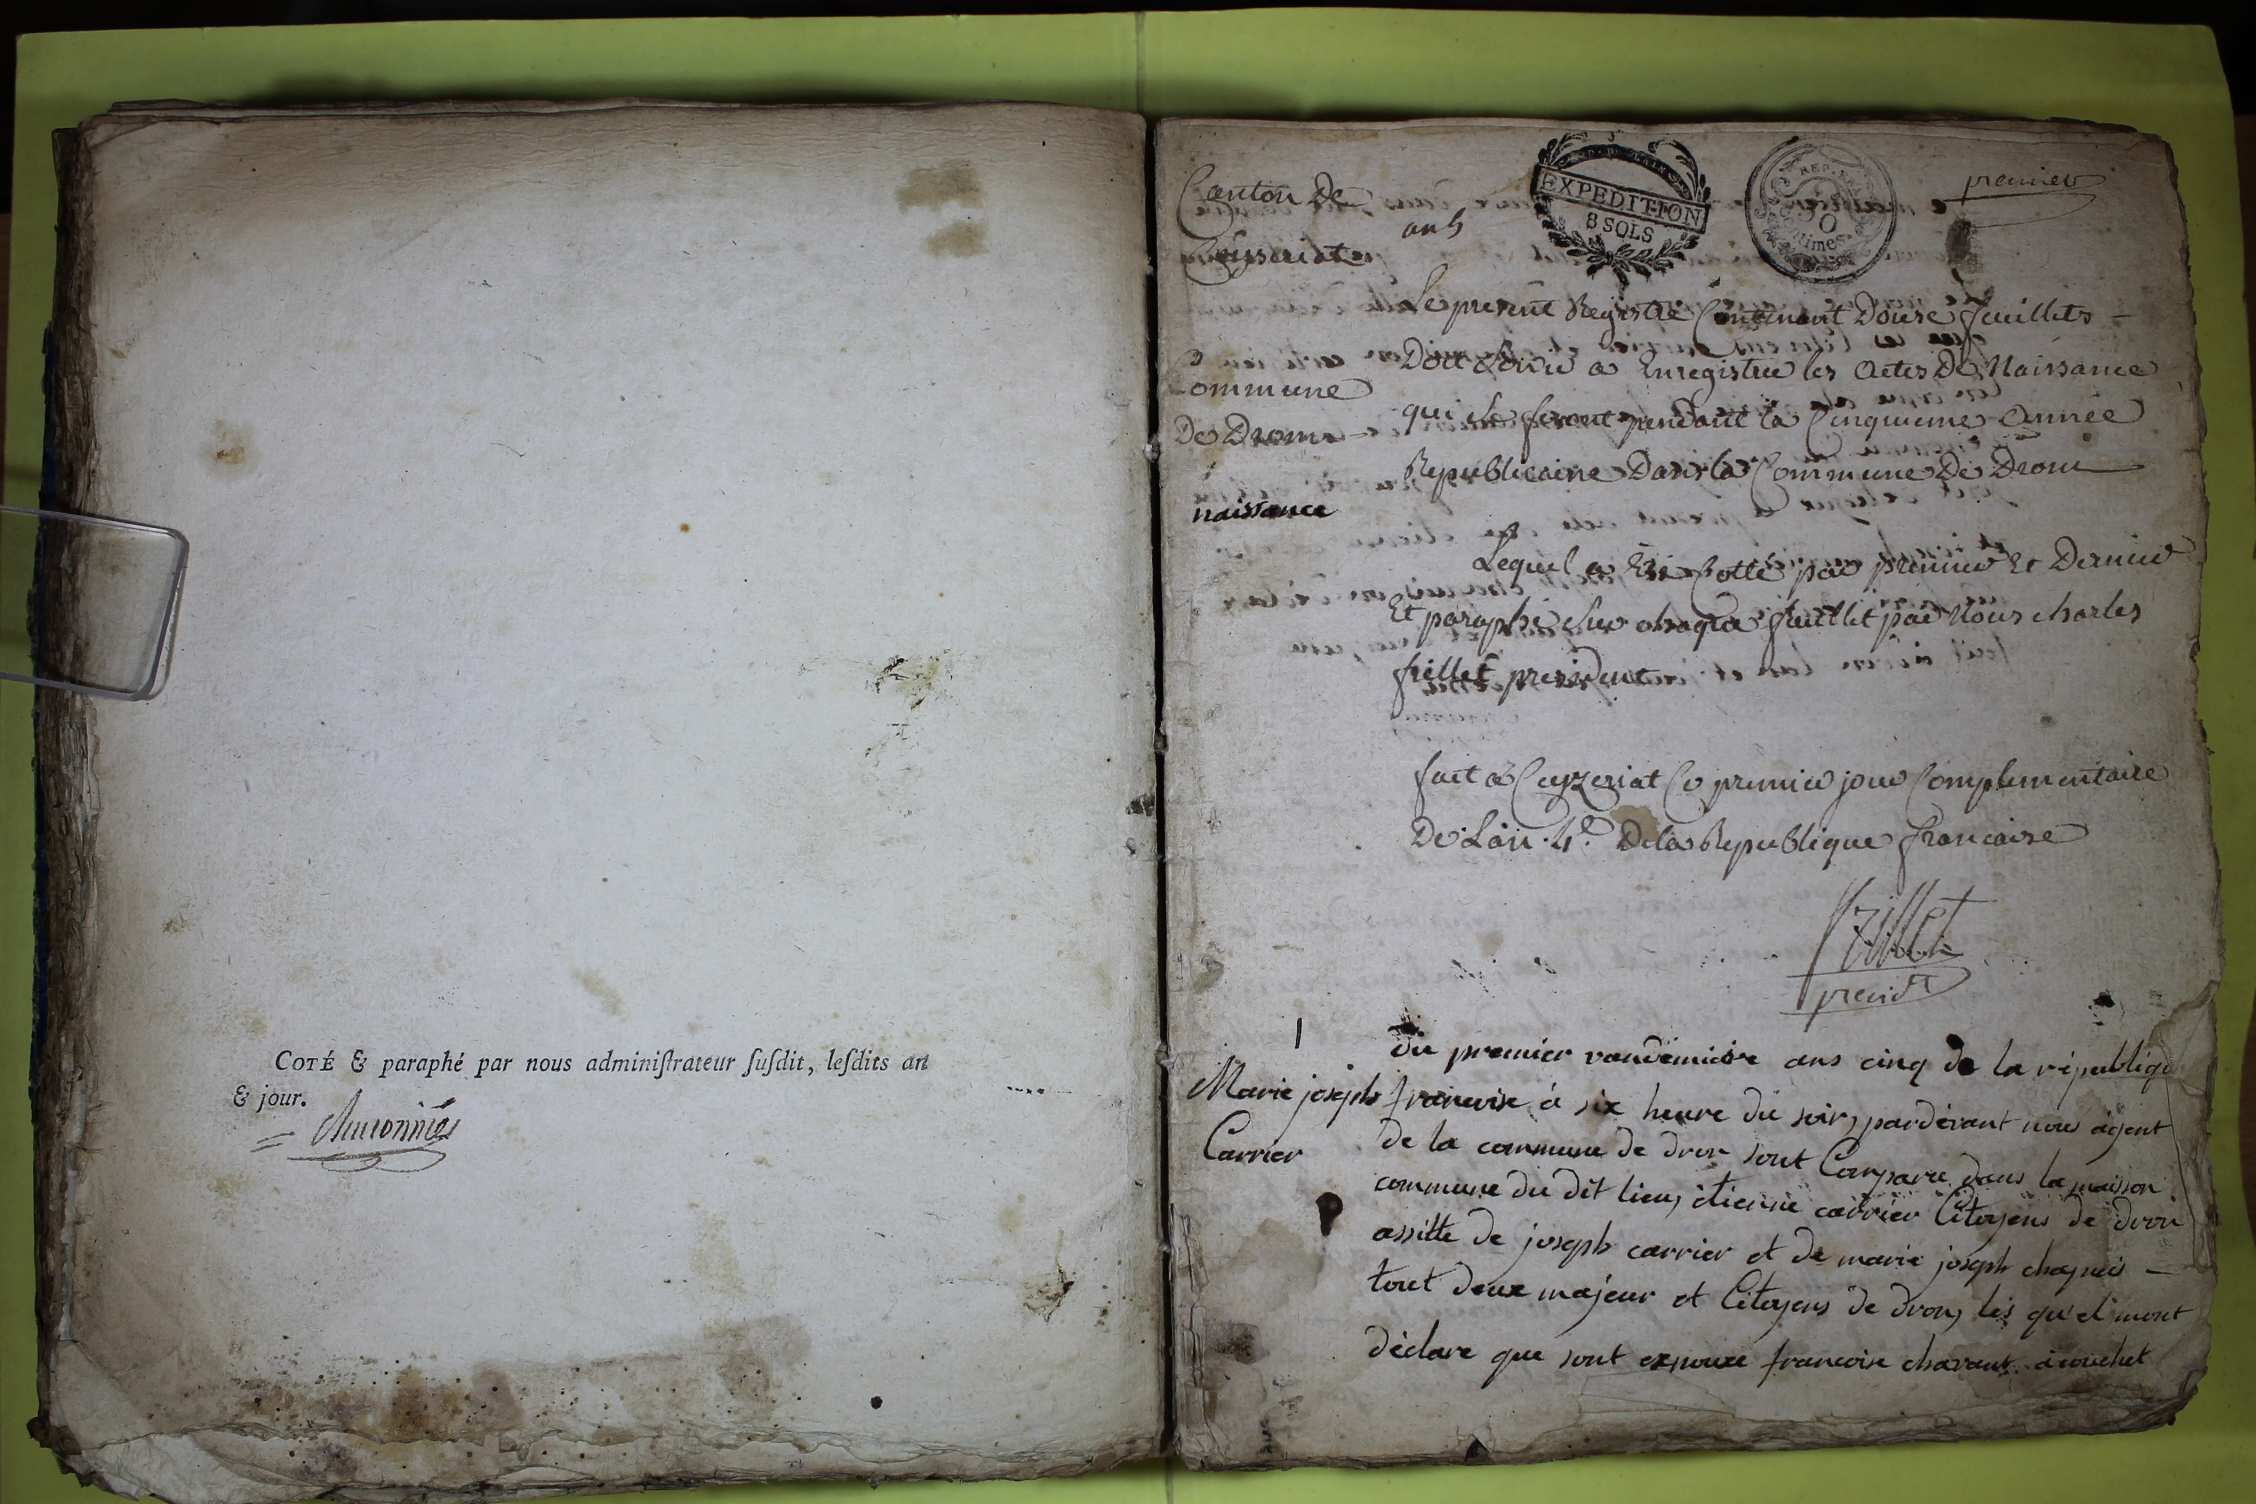 COTÉ & paraphé par nous adminiſtrateur ſuſdit, leſdits an
& jour.
premier
Canton De
an 5
Ceyseriat
EXPEDITION
8 SOLS
REP.
Le present Registre Contenant Douze feuillets
Commune
De Drom
Doit servir a Enregistrer les Actes De Naissance
qui se feront pendant la Cinquieme Année
Republicaine Dans la Commune De Drom
naissance
Lequel a Eté Cotté par premier Et Dernier
Et paraphé sur chaque feuillet par Nous charles
frillet president
fait a Ceyzeriat Ce premier jour Complementaire
De L'an 4e. De la Republique francaise
frillet
presidt
1
Marie joseph
Carrier
du premier vandemiaire ans cinq de la républiqu
francoise à six heure du soir, pardevant nous agent
de la commune de dron sont Comparu dans la maison
commune du dit lieu, étienne carrier Citoyens de dron
assitte de joseph carrier et de marie joseph chapuis
tout deux majeur et Citoyens de dron, les qu'el mont
déclare que sont expouze francoise chavant acouchet